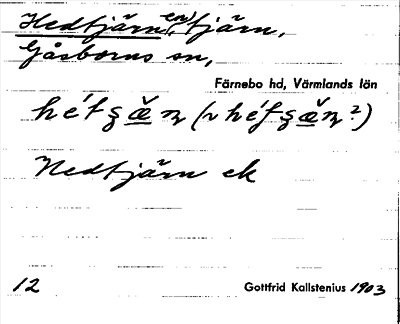 Hedtjärn(en), tjärn,
Gåsborns sn,
Färnebo hd, Värmlands län
Hedtjärn ek
12
Gottfrid Kallstenius 1903